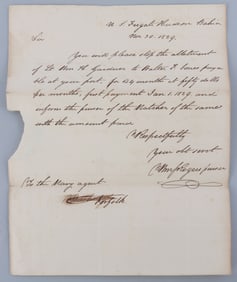 U. S. Frigate Hudson
Nov 20. 1829.
Sir
You will please stop the allotment
of Lt Wm H Gardner to
able at your port. for 24 months at fifty dolls
per months, first payment Jan 1. 1829 and
inform the purser of the Natchez of the same
with the amount
Respectfully
Your obt servt
purser
To the Navy agent
Norfolk